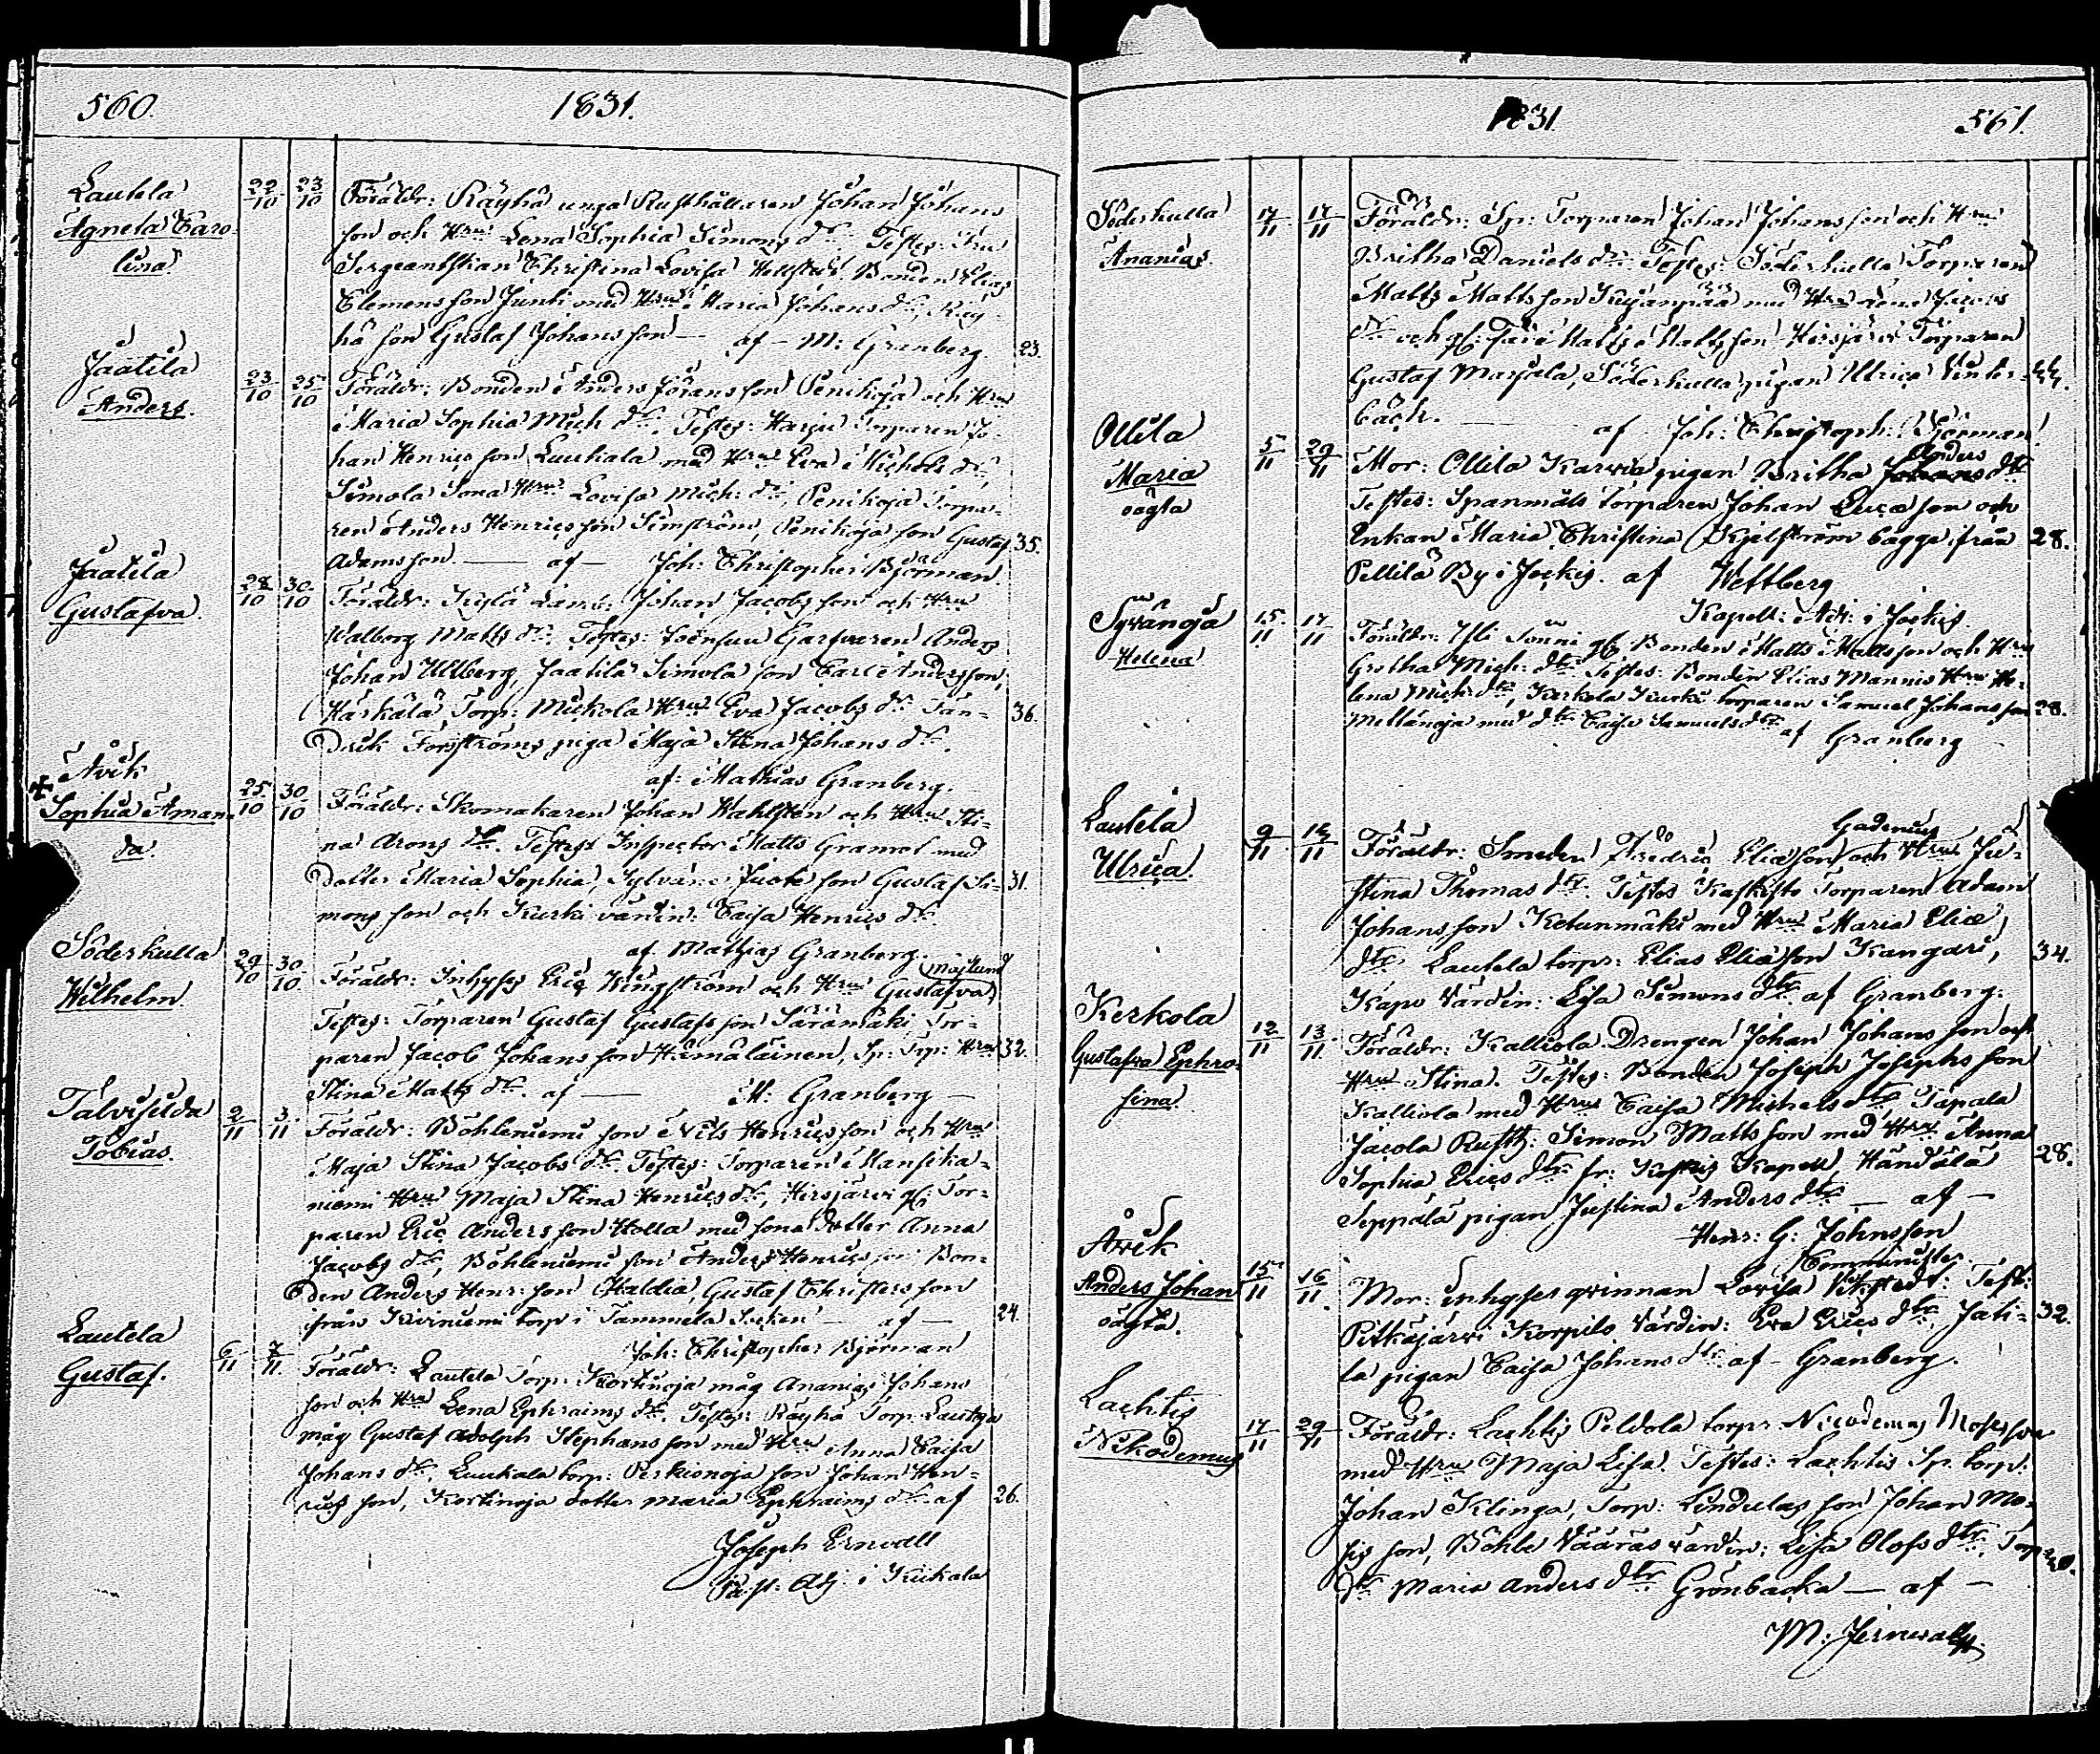 560. 1831.
Lautela 22/10 23/10 Föräldr: Räyhä unga Rusthållaren Johan Johans
Agneta Caro- son och Hru Lena Sophia Simons dr. Testes: Fru
lina. Sergeantskan Christina Lovisa Bonden Elias
Clemens son Junti med Hru Maria Johans dr, Räy-
hä son Gustaf Johans son — af — M: Granberg. 23.
Jaatila 23/10 25/10 Föräldr: Bonden Anders Jöransson Penikoja och Hru
Anders. Maria Sophia Mich dr. Testes: Harju Torparen Jo-
han Henrics son Luukala med Hru Eva Michels dr,
Simola Sona Hru Lovisa Mich: dr, Penikoja Torpa-
ren Anders Henrics son Simström, Penikoja son Gustaf 35.
Adamsson. — af — Joh: Christopher Björman.
Jaatila 28/10 30/10 Föräldr: Kylä Johan Jacobs son och Hru
Gustafva. Walborg Matts dr. Testes: Garfvaren Anders
Johan Ullberg, Jaatila Simola son Carl Andersson,
Härkälä Torp: Mickola Hru Eva Jacobs dr Fän- 36.
drik Forsströms piga Maja Stina Johans dr.
af: Mathias Granberg.
+ Åvik 25/10 30/10 Föräldr: Skomakaren Johan Wahlsten och Hru Sti-
Sophia Aman- na Arons dr. Testes: Inspector Matts Granrot med
da. Dotter Maria Sophia, Sylväne Juote son Gustaf Si- 31.
mons son och Kurki värdin: Caisa Henrics dr.
af Mathias Granberg.
Söderkulla 29/10 30/10 Föräldr: Inhyses Eric Kingström och Hru Gustafva Möjlund
Wilhelm. Testes: Torparen Gustaf Gustafs son Särämäki, Tor-
paren Jacob Johans son Hämäläinen, Sp: Trp: Hru 32.
Stina Matts dr. af — M: Granberg —
Talvisilda 2/11 3/11 Föräldr: Böhleniemi son Nils Henrics son och Hru
Tobias. Maja Stina Jacobs dr. Testes: Torparen Mansika-
niemi Hru Maja Stina Henrics dr, Hirsjärvi gl: Tor-
paren Eric Anders son Holla med sona dotter Anna
Jacobs dr, Böhleniemi son Anders Henrics son Bon-
den Anders Henr: son Haldia, Gustaf Christers son
ifrån Kiviniemi torp i Tammela Socken — af — 24.
Joh: Christopher Björman
Lautela 6/11 7/11 Föräldr: Lautela Torp: Kortinoja måg Ananias Johans
Gustaf. son och Hru Lena Ephraims dr. Testes: Räyhä Torp: Lautoja
måg Gustaf Adolph Stephans son med Hru Anna Caisa
Johans dr, Luukala torp: Perkionoja son Johan Hen-
rics son, Kortinoja dotter Maria Ephraims dr. af 26.
Joseph Ernvall
Past: Adj: i Kiikala
1831. 561.
Söderkulla 17/11 17/11 Föräldr: Sp: Torparen Johan Johans son och Hru
Ananias. Britha Daniels dr. Testes: Söderkulla Torparen
Matts Matts son Kujanpää med Hru Lena Jacobs
dr och gl: Far Matts Matts son Hirsjärvi Torparen
Gustaf Marjala, Söderkulla pigan Ulrica Vinter- 44.
bäck. — af Joh: Christoph: Björman.
Ollila 5/11 29/11 Mor: Ollila Karvia pigan Britha Anders dtr
Maria Testes: Spanmäls torparen Johan Lucæ son och
oägta Enkan Maria Christina Kjellström bägge från 28.
Pellilä By i Jockis. af Wettberg
Kapell: Adj: i Jockis.
Syvänoja 15/11 17/11 Föräldr: Yli Sönni gl: Bonden Matts Mattsson och Hru
Helena Gretha Mich: dtr. Testes: Bonden Elias Mannis Hru He-
lena Mich: dtr, Kerkola Kurki torparen Samuel Johans son 28.
Mellänoja med dtr Caisa Samuels dtr af Granberg
Lautela 9/11 12/11 Föräldr: Smeden Fredric Eliæ son Gadenius och Hru Ju-
Ulrica. stina Thomas dtr. Testes Kaskisto Torparen Adam
Johans son Ketunmäki med Hru Maria Eliæ
dtr Lautela torpr: Elias Eliæ son Kangari, 34.
Käpo Värdin: Lisa Simons dtr af Granberg.
Kerkola 12/11 13/11 Föräldr: Kalliola Drengen Johan Johans son och
Gustafva Ephro- Hru Stina. Testes: Bonden Joseph Josephs son
sina. Kalliola med Hru Caisa Michels dtr Tapala
Jacola Rusth: Simon Matts son med Hru Anna
Sophia Erics dtr fr: Koskis Kapell, Händälä 28.
Seppälä pigan Justina Anders dtr — af —
Henr: G: Johnsson
Comminister.
Åvik 15/11 16/11 Mor: inhyses qvinnan Lovisa Test:
Anders Johan Pitkäjärvi Korpilo Värdin: Eva Erics dtr, Jati- 32.
oägta. la pigan Caisa Johans dtr af — Granberg.
Lachtis 17/11 29/11 Föräldr: Lachtis Peldola torpr Nicodemus Moses son
Nikodemus med Hru Maja Lisa. Testes: Lachtis Sp: torp:
Johan Klinga, Torp: Lindulas son Johan Mo-
sis son, Böhle Vääräs värdin: Lisa Olofs dtr, Torp: 40.
dtr Maria Anders dtr Grönbacka — af —
M: Jernvall.